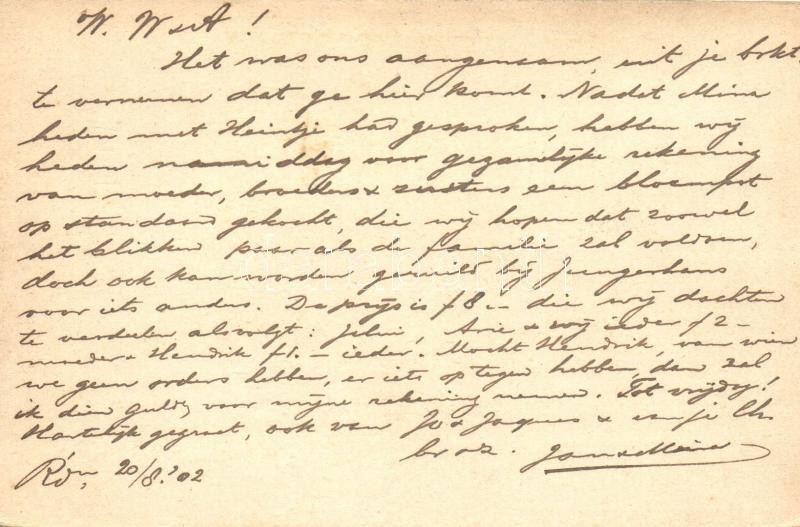 W. W en A!
Het was ons aangenaam, uit je brkt.
te vernemen dat ge hier komt. Nadat Mina
heden met Heintje had gesproken, hebben wij
heden namiddag voor gezamelijke rekening
van moeder, broeders & zusters een bloempot
op standaard gekocht, die wij hopen dat zoowel
het blikken paar als de familie zal voldoen,
doch ook kan worden geruild bij Jungerhans
voor iets anders. De prijs is f 8.- die wij dachten
te verdeelen als volgt: Arie & wij ieder f 2-
moeder & Hendrik f 1.- ieder. Mocht Hendrik, van wien
we geen orders hebben, er iets op tegen hebben, dan zal
ik dien guld. voor mijne rekening nemen. Tot vrijdag!
Hartelijk gegroet, ook van Jo & Jaques & van je
br Jan & Mina
R'dm, 20/8.'02